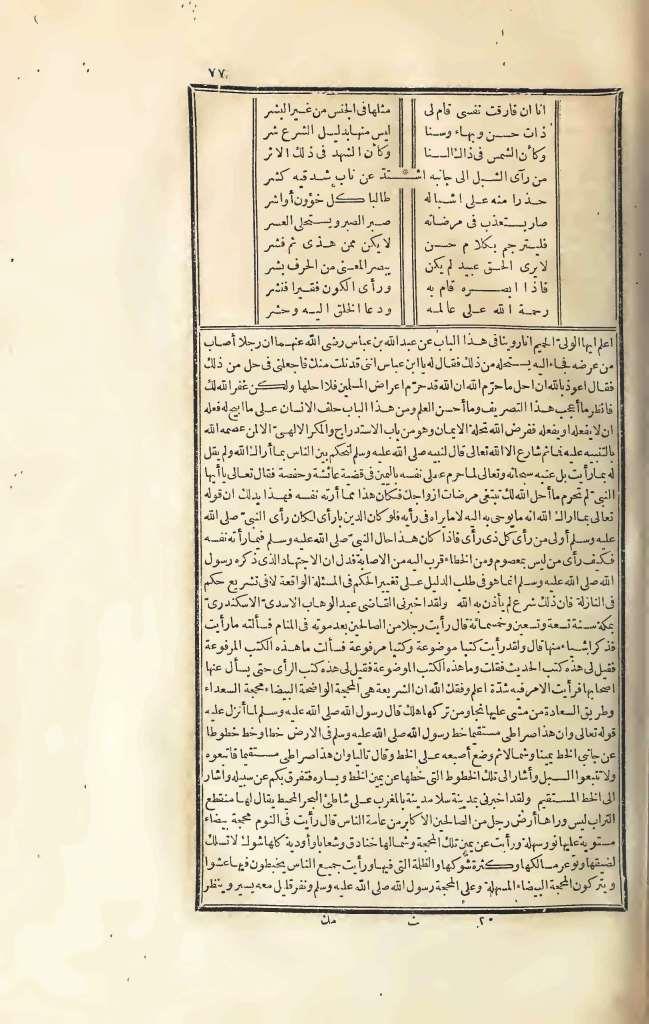 ٧٧
انا ان فارقت نفسى قام لى مثلها فى الجنس من غير البشر
ذات حسن وبهاء وسنا ليس منها بدليل الشرع شر
وكأن الشمس فى ذاك السنا وكأن الشهد فى ذلك الاثر
من رأى الشبل الى جانبه اشتد عن ناب شدقيه كشر
حذرا منه على اشباله طالبا كل خؤون أو اشر
صار يستعذب فى مرضاته صبر الصبر ويستحلى العسر
فليترجم بكلام حسن لا يكن ممن هذى ثم فشر
لا يرى الحق عبيد لم يكن يبصر المعنى من الحرف بشر
فاذا ابصره قام به ورأى الكون فقيرا فنشر
رحمة الله على عالمه ودعا الخلق اليه وحشر
اعلم ايها الولى الحميم انا روينا فى هذا الباب عن عبد الله بن عباس رضى الله عنهما ان رجلا أصاب
من عرضه فجاء اليه يستحله من ذلك فقال له يا ابن عباس اننى قد نلت منك فاجعلنى فى حل من ذلك
فقال اعوذ بالله ان احل ما حرم الله ان الله قد حرم اعراض المسلمين فلا احلها ولكن غفر الله لك
فانظر ما أعجب هذا التصريف وما أحسن العلم ومن هذا الباب حلف الانسان على ما ابيح له فعله
ان لا يفعله او يفعله ففرض الله تحلة الايمان وهو من باب الاستدراج والمكر الالهى الا لمن عصمه الله
بالتنبيه عليه فما ثم شارع الا الله تعالى قال لنبيه صلى الله عليه وسلم لتحكم بين الناس بما أراك الله ولم يقل
له بما رأيت بل عتبه سبحانه وتعالى لما حرم على نفسه باليمين فى قضية عائشة وحفصة فقال تعالى يا أيها
النبى لم تحرم ما أحل الله لك تبتغى مرضات ازواجك فكان هذا مما أرته نفسه فهذا يدلك ان قوله
تعالى بما اراك الله انه ما يوحى به اليه لا ما يراه فى رأيه فلو كان الدين بالرأى لكان رأى النبى صلى الله
عليه وسلم أولى من رأى كل ذى رأى فاذا كان هذا حال النبى صلى الله عليه وسلم فيما رأته نفسه
فكيف رأى من ليس بمعصوم ومن الخطاء قرب اليه من الاصابة فدل ان الاجتهاد الذى ذكره رسول
الله صلى الله عليه وسلم انما هو فى طلب الدليل على تغيير الحكم فى المسئلة الواقعة لا فى تشريع حكم
فى النازلة فان ذلك شرع لم يأذن به الله ولقد اخبرنى القاضى عبد الوهاب الاسدى الاسكندرى
بمكة سنة تسعة وتسعين وخمسمائة قال رأيت رجلا من الصالحين بعد موته فى المنام فسألته ما رأيت
فذكر اشياء منها قال ولقد رأيت كتبا موضوعة وكتبا مرفوعة فسألت ما هذه الكتب المرفوعة
فقيل لى هذه كتب الحديث فقلت وما هذه الكتب الموضوعة فقيل لى هذه كتب الرأى حتى يسأل عنها
اصحابها فرأيت الامر فيه شدة اعلم وفقك الله ان الشريعة هى المحجة الواضحة البيضاء محجة السعداء
وطريق السعادة من مشى عليها نجا ومن تركها هلك قال رسول الله صلى الله عليه وسلم لما أنزل عليه
قوله تعالى وان هذا صراطى مستقيما خط رسول الله صلى الله عليه وسلم فى الارض خطا وخط خطوطا
عن جانبى الخط يمينا وشمالا ثم وضع أصبعه على الخط وقال تاليا وان هذا صراطى مستقيما فاتبعوه
ولا تتبعوا السبل وأشار الى تلك الخطوط التى خطها عن يمين الخط ويساره فتفرق بكم عن سبيله واشار
الى الخط المستقيم ولقد اخبرنى بمدينة سلا مدينة بالمغرب على شاطئ البحر المحيط يقال لها منقطع
التراب ليس وراها أرض رجل من الصالحين الاكابر من عامة الناس قال رأيت فى النوم محجة بيضاء
مستوية عليها نور سهلة ورأيت عن يمين تلك المحجة وشمالها خنادق وشعابا وأودية كلها شوك لا تسلك
لضيقها وتوعر مسالكها وكثرة شوكها والظلمة التى فيها ورأيت جميع الناس يخبطون فيها عشوا
ويتركون المحجة البيضاء السهلة وعلى المحجة رسول الله صلى الله عليه وسلم ونفر قليل معه يسير وينظر
٢٠ ث مك